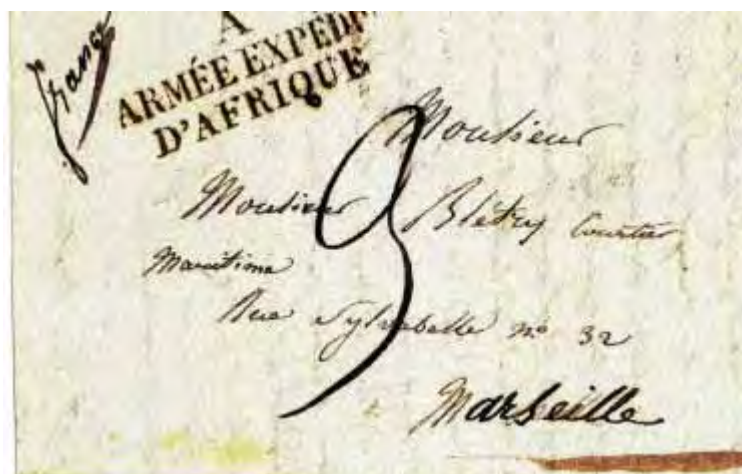 A
ARMÉE EXPÉD
D'AFRIQUE
Monsieur
Monsieur Blétry Courtier
Maritime
Rue Sylvabelle nº 32
Marseille